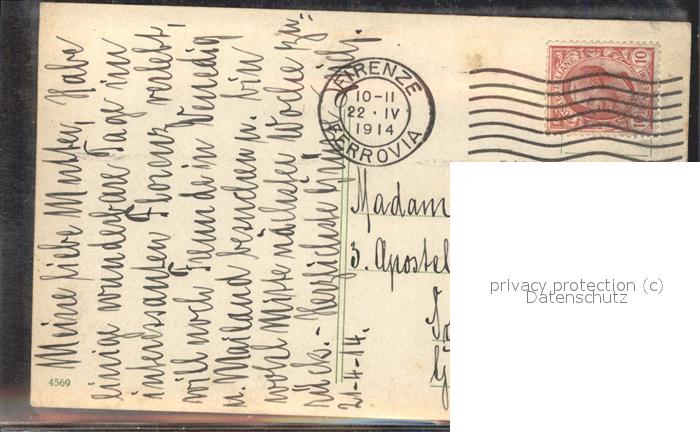 Meine liebe Mutter, Habe
einige wunderbare Tage im
interessanten Florenz verlebt,
will noch Freunde in Venedig
u. Mailand besuchen u. bin
wohl Mitte nächster Woche zu-
rück. - Herzlichste
21-4-14.
FIRENZE
10-11
22 · IV
1914
FERROVIA
10
Madam
3. Apostel
privacy protection (c)
Datenschutz
4569